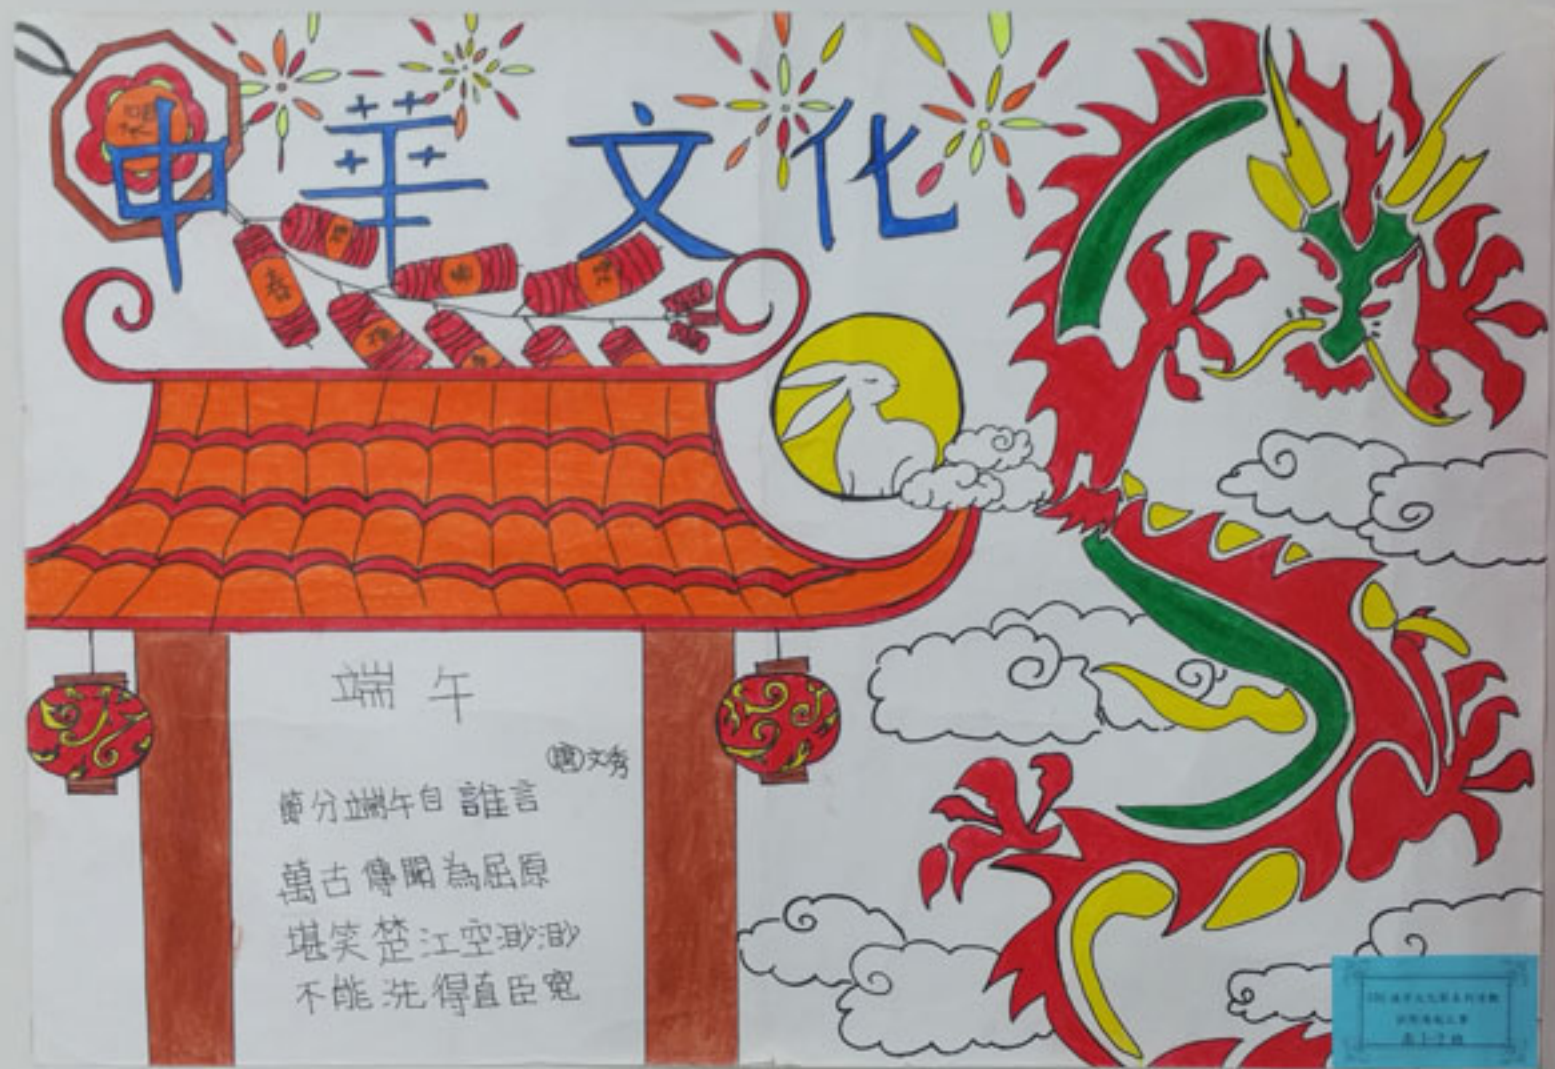 中華文化
春
端午
唐文秀
節分端午自誰言
萬古傳聞為屈原
堪笑楚江空渺渺
不能洗得直臣寃